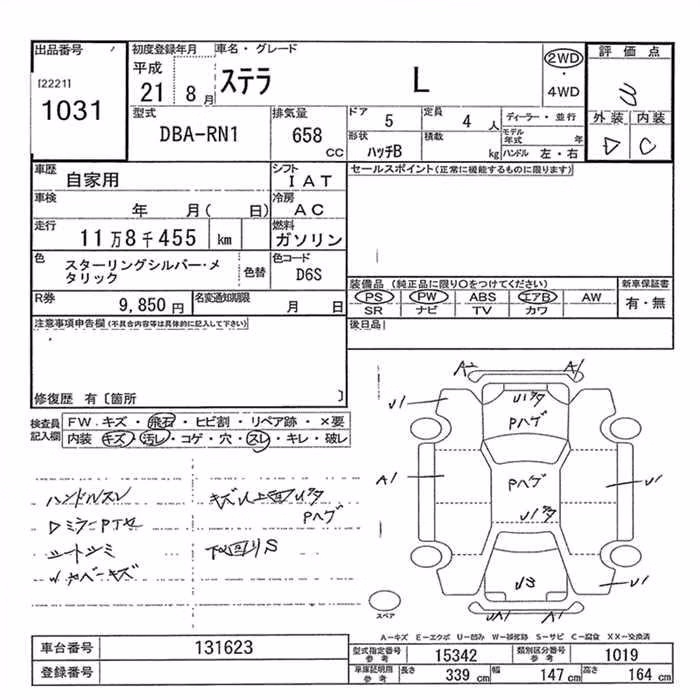 出品番号
[2221]
1031
初度登録年月
平成
21 8 月
車名・グレード
ステラ L
2WD
・
4WD
評価点
3
外装 内装
D C
型式
DBA-RN1
排気量
658
CC
ドア 5
定員 4 人
形状 ハッチB
積載 kg
ディーラー・並行
モデル年式 年
ハンドル 左・右
車歴 自家用
シフト IAT
車検 年 月( 日)
冷房 AC
走行 11万8千455 km
燃料 ガソリン
色 スターリングシルバー・メタリック
色替
色コード D6S
R券 9,850 円
名変通知期限 月 日
セールスポイント(正常に機能するものに限ります)
装備品 (純正品に限り○をつけてください)
新車保証書
PS PW ABS エアB AW
有・無
SR ナビ TV カワ
後日品
注意事項申告欄(不具合内容等は具体的に記入して下さい)
修復歴 有〔箇所 〕
検査員記入欄
FW.キズ・飛石・ヒビ割・リペア跡・×要
内装 キズ・汚レ・コゲ・穴・スレ・キレ・破レ
ハンドルスレ
シートシミ
キズ
下回りS
A2 A1
U1
Pハゲ
A1
Pハゲ
U1
US
U1
スペア
A－キズ E－エクボ U－凹み W－補修跡 S－サビ C－腐食 XX－交換済
車台番号 131623
登録番号
型式指定番号参考 15342
類別区分番号参考 1019
車庫証明用参考
長さ 339 cm
幅 147 cm
高さ 164 cm